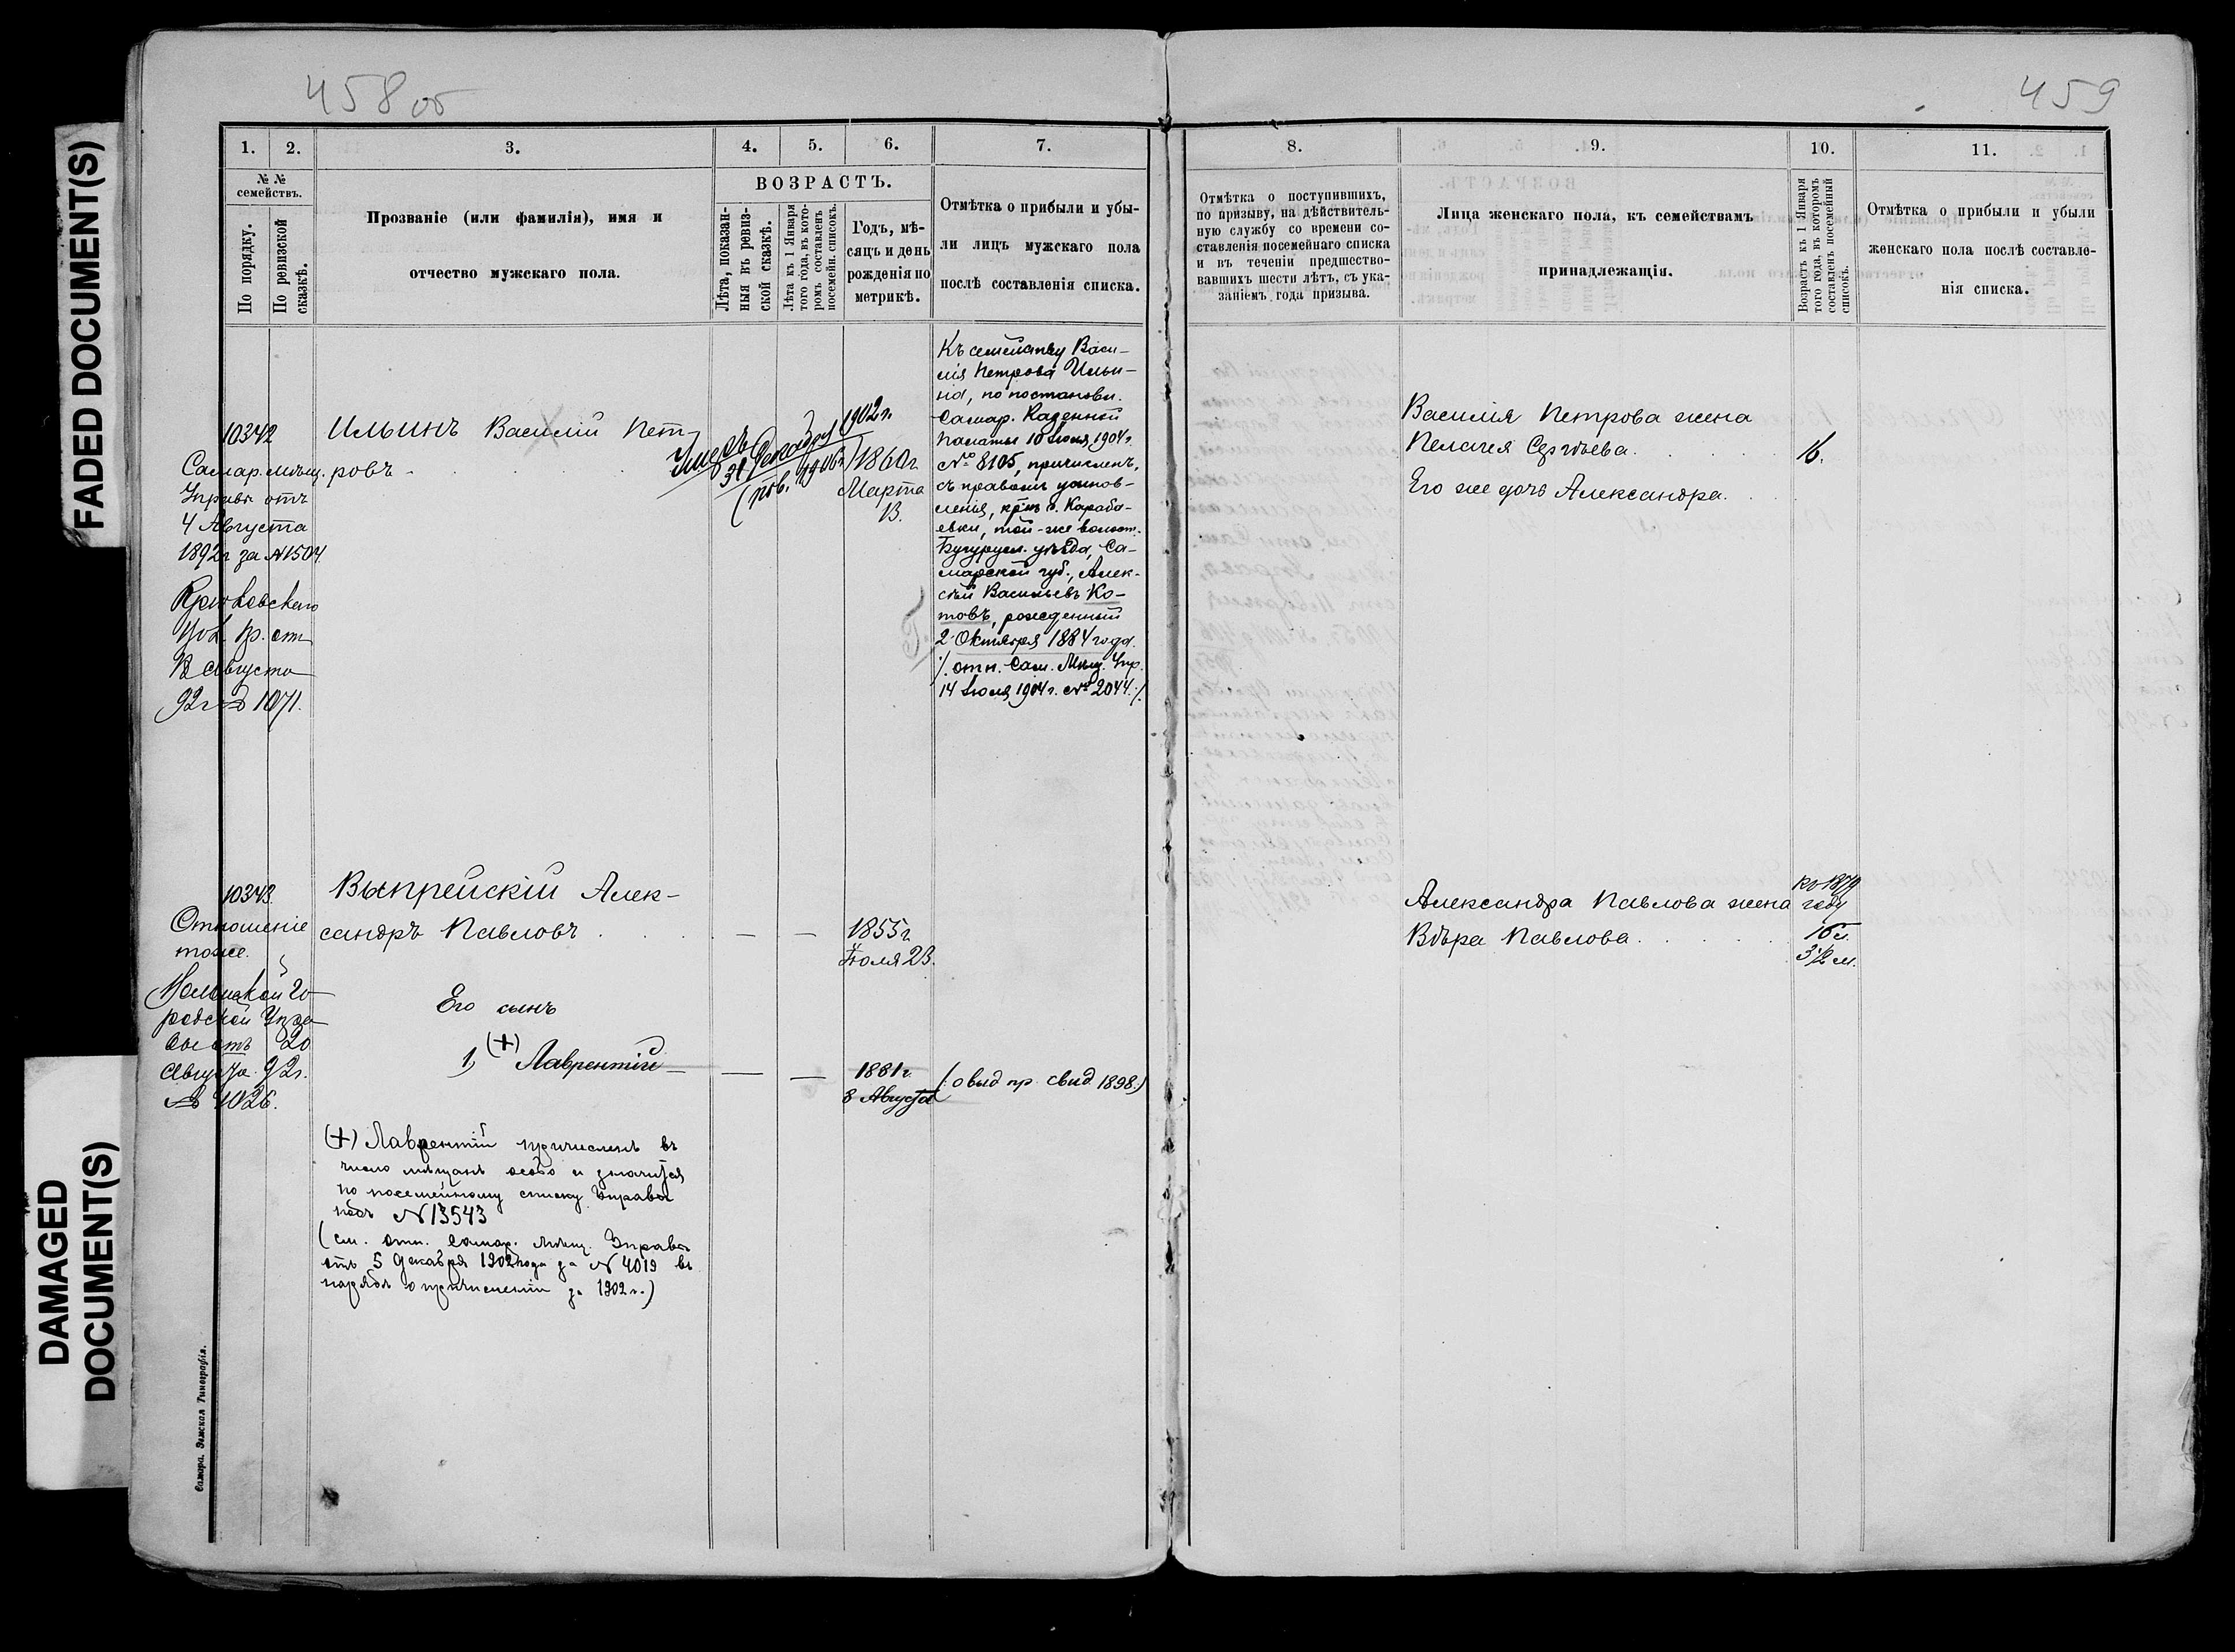 FADED DOCUMENT(S)
DAMAGED
DOCUMENT(S)
458 об
1. 2. 3. 4. 5. 6. 7.
№ №
семействъ.
По порядку.
По ревизской
сказкѣ.
Прозваніе (или фамилія), имя и
отчество мужскаго пола.
ВОЗРАСТЪ.
Лѣта, показан-
ныя въ ревиз-
ской сказкѣ.
Лѣта къ 1 Января
того года, въ кото-
ромъ составленъ
посемейн. списокъ.
Годъ, мѣ-
сяцъ и день
рожденія по
метрикѣ.
Отмѣтка о прибыли и убы-
ли лицъ мужскаго пола
послѣ составленія списка.
10342
Самар. мѣщ.
Управы отъ
4 Августа
1892 г за №1504
отъ
Августа
92 г № 1071.
Ильинъ Василій Пет-
ровъ
Умеръ
31 Декабря 1902 г.
1906
1860 г
Марта
13.
Къ семейству Васи-
лія Петрова Ильи-
на, по постановл.
Самар. Казенной
Палаты 10 Іюня 1904 г.
№ 8105, причисленъ,
съ правомъ усынов-
ленія, кр-нъ с. Караба-
евки, той-же волост.
Бугурусл. уѣзда, Са-
марской губ., Алек-
сѣй Васильевъ Ко-
товъ, рожденный
2 Октября 1884 года.
/. отн. Сам. Мѣщ. Упр.
14 Іюля 1904 г. № 2044 ./.
10343.
Отношеніе
тоже.
Вольской го-
родской Упра-
вы отъ 20
Августа 92 г.
№ 4026.
Выпрейскій Алек-
сандръ Павловъ
— —
1855 г
Іюля 23.
Его сынъ
1, (+) Лаврентій
— —
1881 г
8 Августа
(о выд пр. свид 1898.)
(+) Лаврентій причисленъ въ
число мѣщанъ особо и значится
по посемейному списку Управы
подъ № 13543
(см. отн. Самар. мѣщ. Управы
отъ 5 Декабря 1902 года за № 4019 въ
нарядѣ о причисленіи за 1902 г.)
Самара. Земская Типографія.
459
8. 9. 10. 11.
Отмѣтка о поступившихъ,
по призыву, на дѣйствитель-
ную службу со времени со-
ставленія посемейнаго списка
и въ теченіи предшество-
вавшихъ шести лѣтъ, съ ука-
заніемъ года призыва.
Лица женскаго пола, къ семействамъ
принадлежащія.
Возрастъ къ 1 Января
того года, въ которомъ
составленъ посемейный
списокъ.
Отмѣтка о прибыли и убыли
женскаго пола послѣ составле-
нія списка.
Василія Петрова жена
Пелагея Сергѣева
16.
Его же дочь Александра.
Александра Павлова жена
Вѣра Павлова
къ 1879
году
16 л.
3½ м.